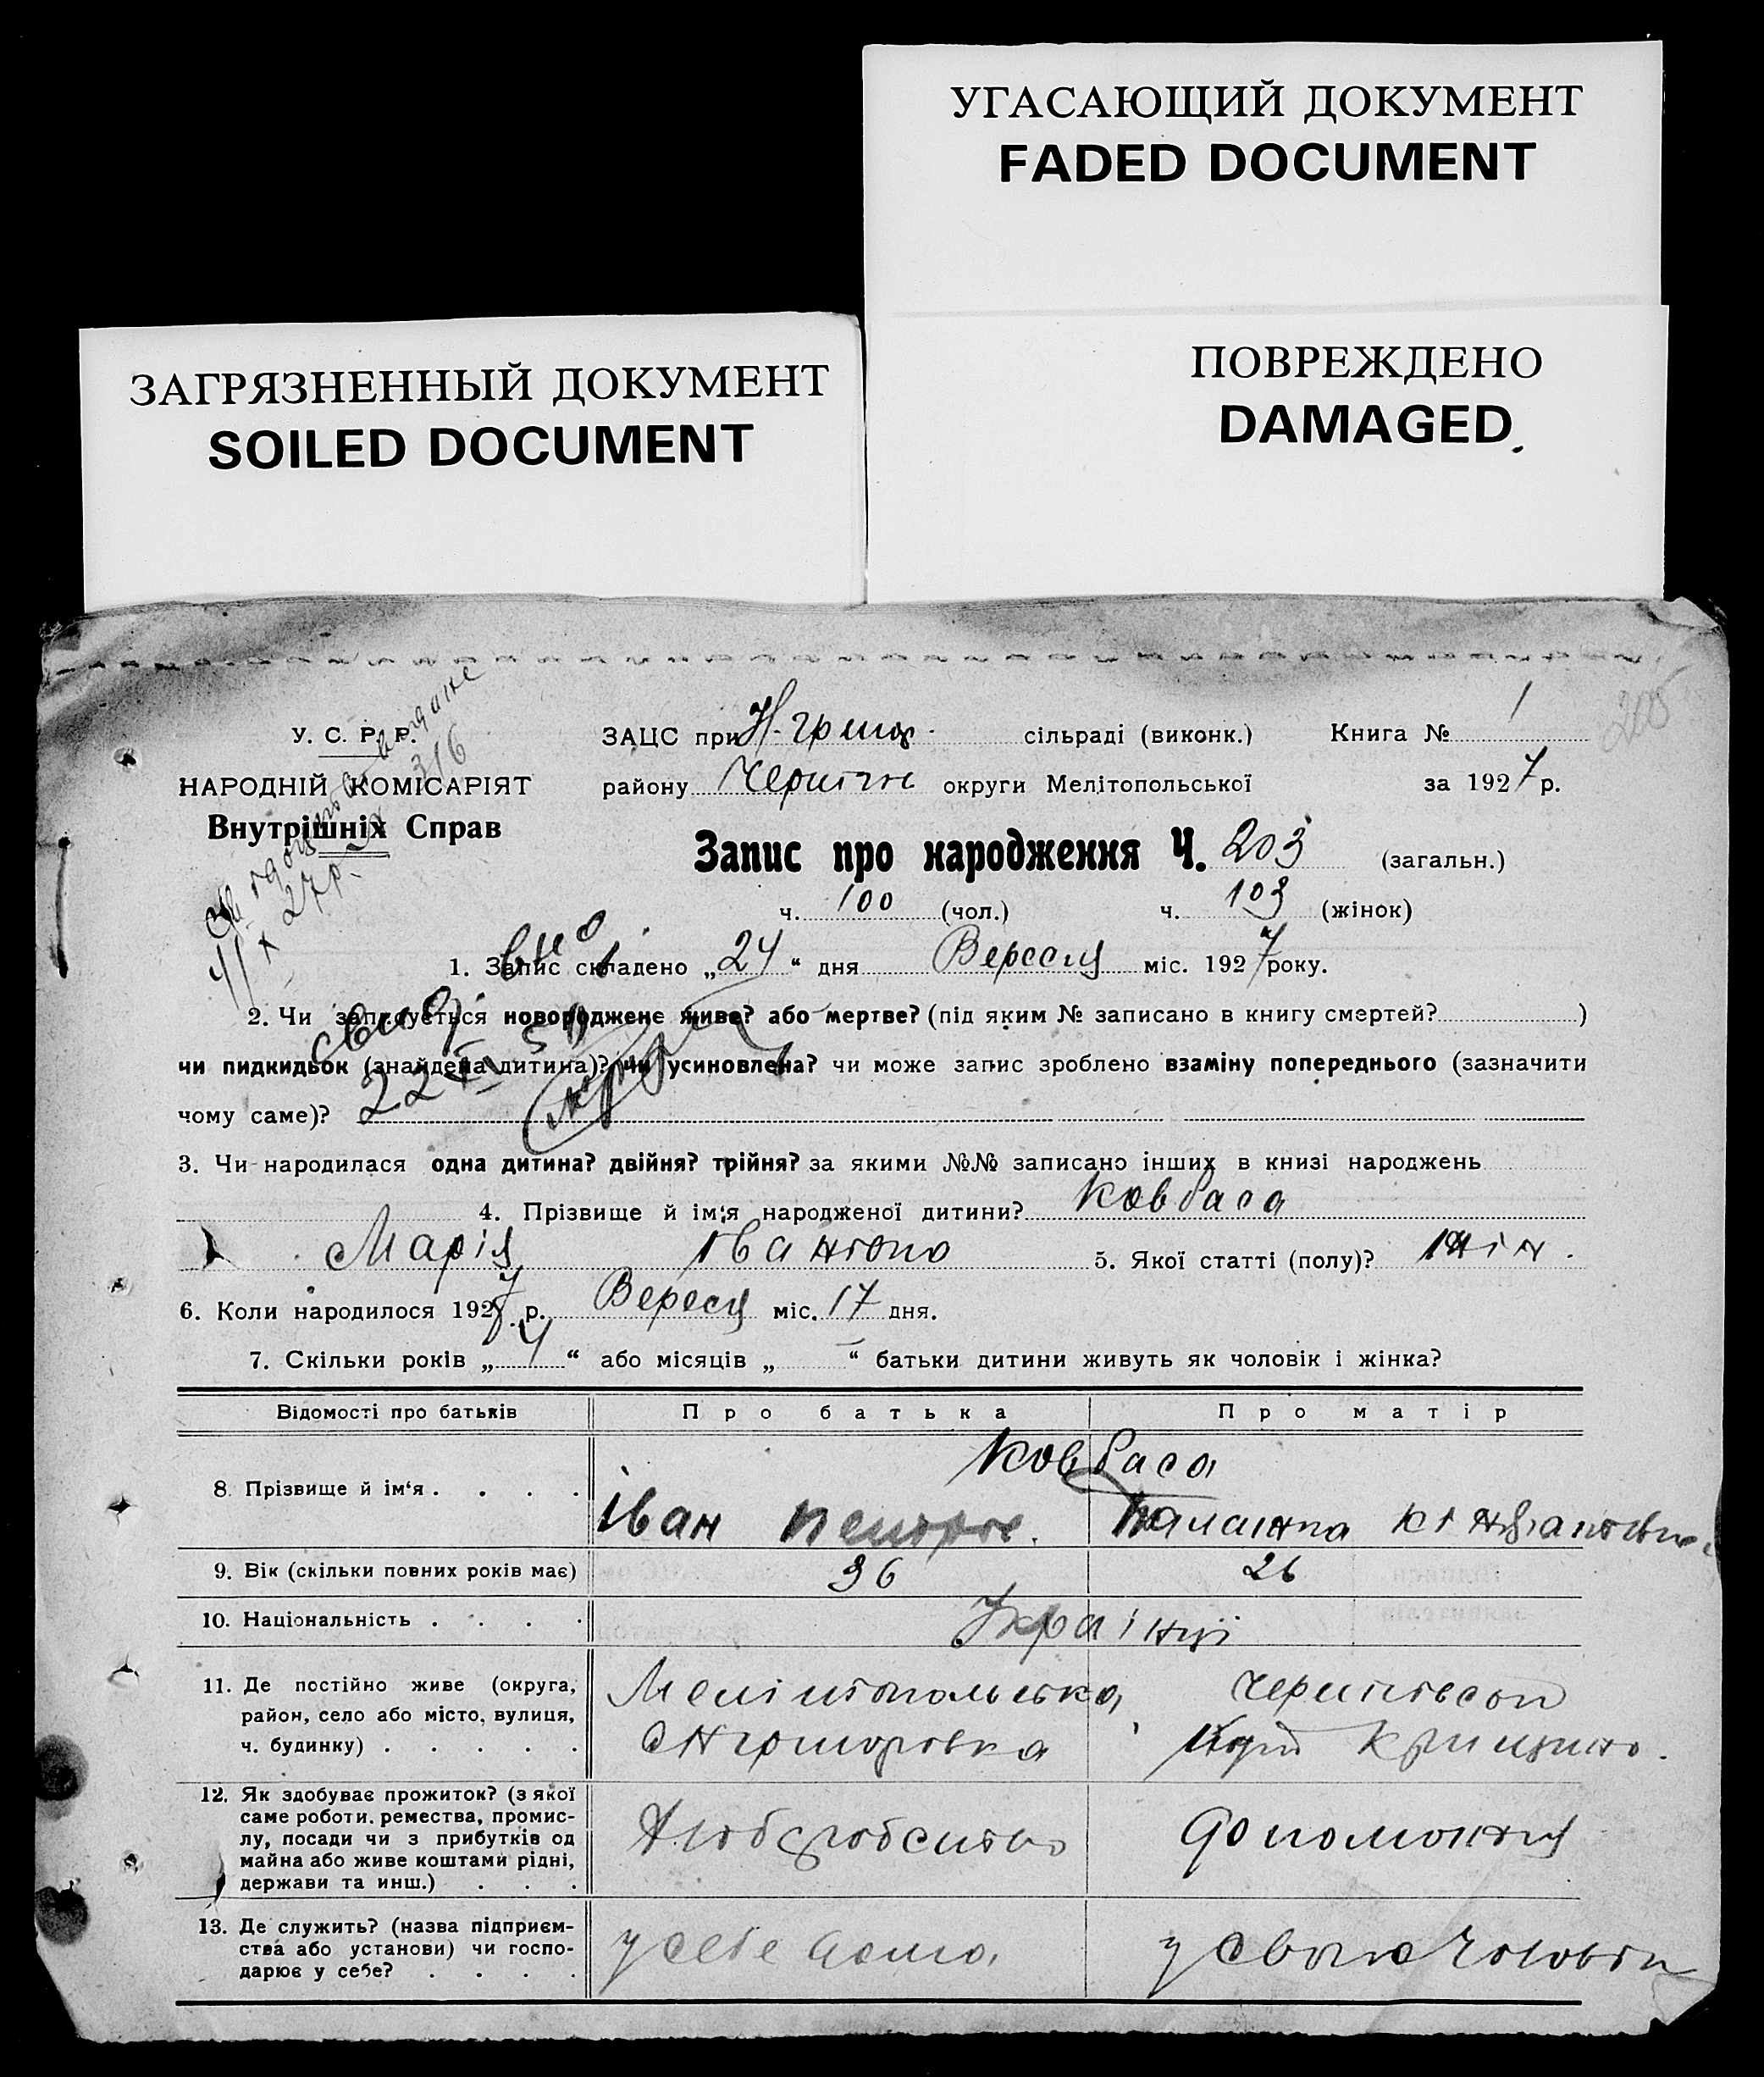 УГАСАЮЩИЙ ДОКУМЕНТ
FADED DOCUMENT
ЗАГРЯЗНЕННЫЙ ДОКУМЕНТ
SOILED DOCUMENT
ПОВРЕЖДЕНО
DAMAGED
У. С. Р. Р.
НАРОДНІЙ КОМІСАРІЯТ
Внутрішніх Справ
316
27р.
ЗАЦС при сільраді (виконк.) Книга № 1
району округи Мелітопольської за 1927 р.
Запис про народження Ч. 203 (загальн.)
ч. 100 (чол.) ч. 103 (жінок)
1. Запис складено „24“ дня Вересня міс. 1927 року.
2. Чи записується новороджене живе? або мертве? (під яким № записано в книгу смертей? )
чи пидкидьок (знайдена дитина)? чи усиновлена? чи може запис зроблено взаміну попереднього (зазначити
чому саме)?
3. Чи народилася одна дитина? двійня? трійня? за якими №№ записано інших в книзі народжень
4. Прізвище й ім'я народженої дитини? Ковбаса
Марія Іванівна 5. Якої статті (полу)? жін.
6. Коли народилося 1927 р. Вересня міс. 17 дня.
7. Скільки років „4“ або місяців „ “ батьки дитини живуть як чоловік і жінка?
Відомості про батьків Про батька Про матір
Ковбаса
8. Прізвище й ім'я . . . . Іван
9. Вік (скільки повних років має) 36 26
10. Національність . . . . Українці
11. Де постійно живе (округа, Мелітопольська,
район, село або місто, вулиця,
ч. будинку) . . . . .
12. Як здобуває прожиток? (з якої
саме роботи. ремества, промис-
лу, посади чи з прибутків од
майна або живе коштами рідні,
держави та инш.) . . .
Хліборобство
13. Де служить? (назва підприєм-
ства або установи) чи госпо-
дарює у себе? . . . .
у себе дома